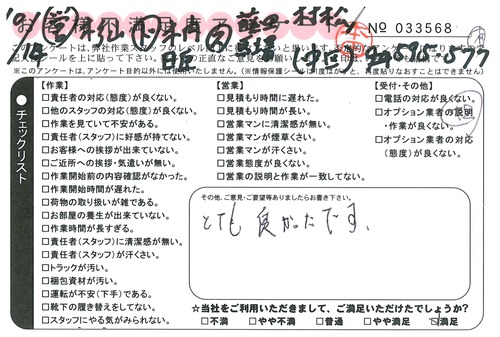 № 033568
チェックリスト
【作業】
□責任者の対応(態度)が良くない。
□他のスタッフの対応(態度)が良くない。
□作業を見ていて不安がある。
□責任者(スタッフ)に好感が持てない。
□お客様への挨拶が出来ていない。
□ご近所への挨拶・気遣いが無い。
□作業開始前の内容確認がなかった。
□作業開始時間が遅れた。
□荷物の取り扱いが雑である。
□お部屋の養生が出来ていない。
□作業時間が長すぎる。
□責任者(スタッフ)に清潔感が無い。
□責任者(スタッフ)が汗くさい。
□トラックが汚い。
□梱包資材が汚い。
□運転が不安(下手)である。
□靴下の履き替えをしてない。
□スタッフにやる気がみられない。
【営業】
□見積もり時間に遅れた。
□見積もり時間が長い。
□営業マンに清潔感が無い。
□営業マンが煙草くさい。
□営業マンが汗くさい。
□営業態度が良くない。
□営業の説明と作業が一致してない。
【受付・その他】
□電話の対応が良くない。
□オプション業者の説明
・作業が良くない。
□オプション業者の対応
(態度)が良くない。
その他、ご意見・ご要望等ありましたらお書き下さい。
とても 良かったです。
☆当社をご利用いただきまして、ご満足いただけたでしょうか?
□不満 □やや不満 □普通 □やや満足 ☑満足